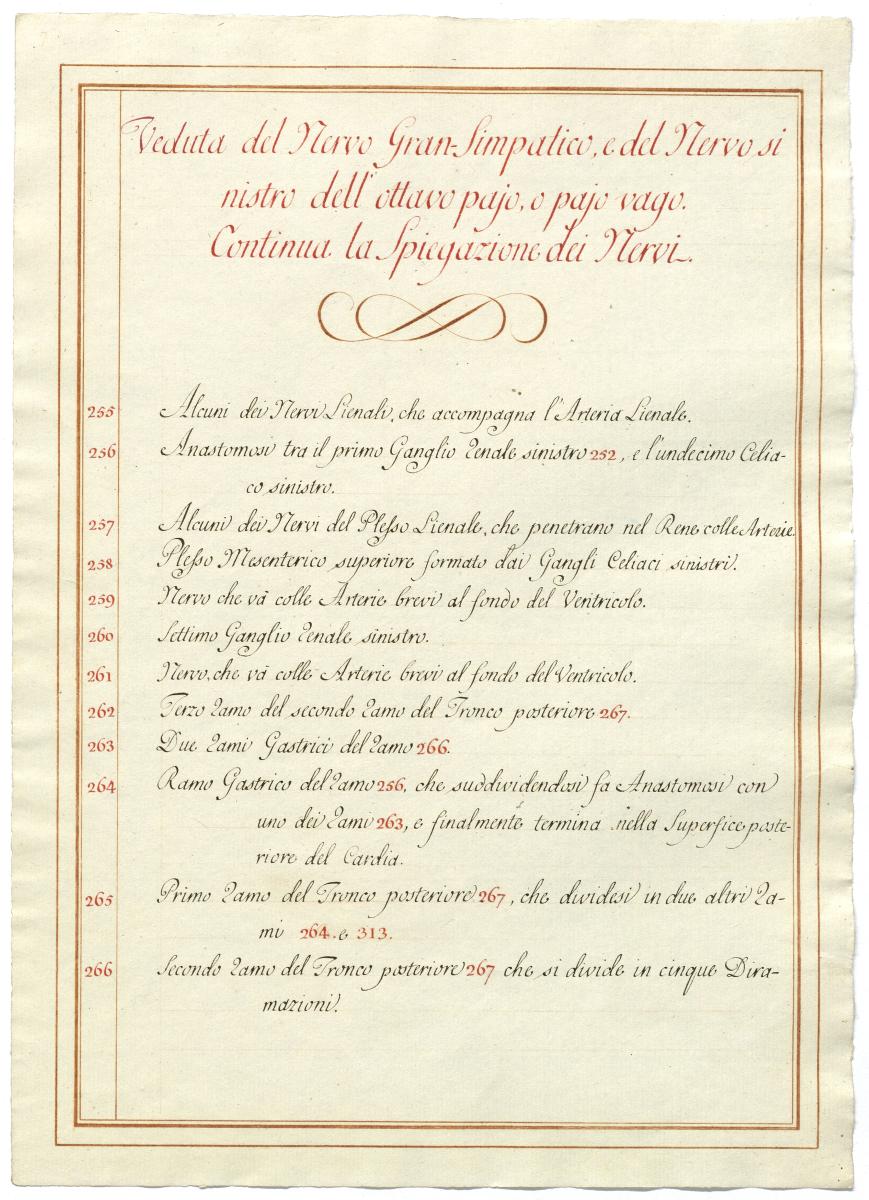 Veduta del Nervo Gran-Simpatico, e del Nervo si
nistro dell'ottavo pajo, o pajo vago.
Continua la Spiegazione dei Nervi.
255 Alcuni dei Nervi Lienali, che accompagna l'Arteria Lienale.
256 Anastomosi tra il primo Ganglio Renale sinistro 252, e l'undecimo Celia-
co sinistro.
257 Alcuni dei Nervi del Plesso Lienale, che penetrano nel Rene colle Arterie.
258 Plesso Mesenterico superiore formato dai Gangli Celiaci sinistri.
259 Nervo che và colle Arterie brevi al fondo del Ventricolo.
260 Settimo Ganglio Renale sinistro.
261 Nervo, che và colle Arterie brevi al fondo del Ventricolo.
262 Terzo Ramo del secondo Ramo del Tronco posteriore 267.
263 Due Rami Gastrici del Ramo 266.
264 Ramo Gastrico del Ramo 256, che suddividendosi fa Anastomosi con
uno dei Rami 263, e finalmente termina nella Superfice poste-
riore del Cardia.
265 Primo Ramo del Tronco posteriore 267, che dividesi in due altri Ra-
mi 264. e 313.
266 Secondo Ramo del Tronco posteriore 267 che si divide in cinque Dira-
mazioni.